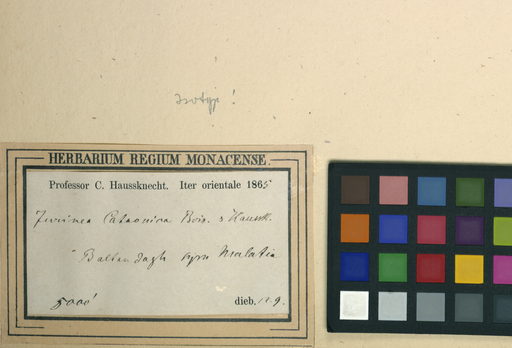 Isotyp !
HERBARIUM REGIUM MONACENSE.
Professor C. Haussknecht. Iter orientale 1865
Jurinea Cataonica Boiss. & Hausskn.
Malatia
5000'
dieb. 12.9.